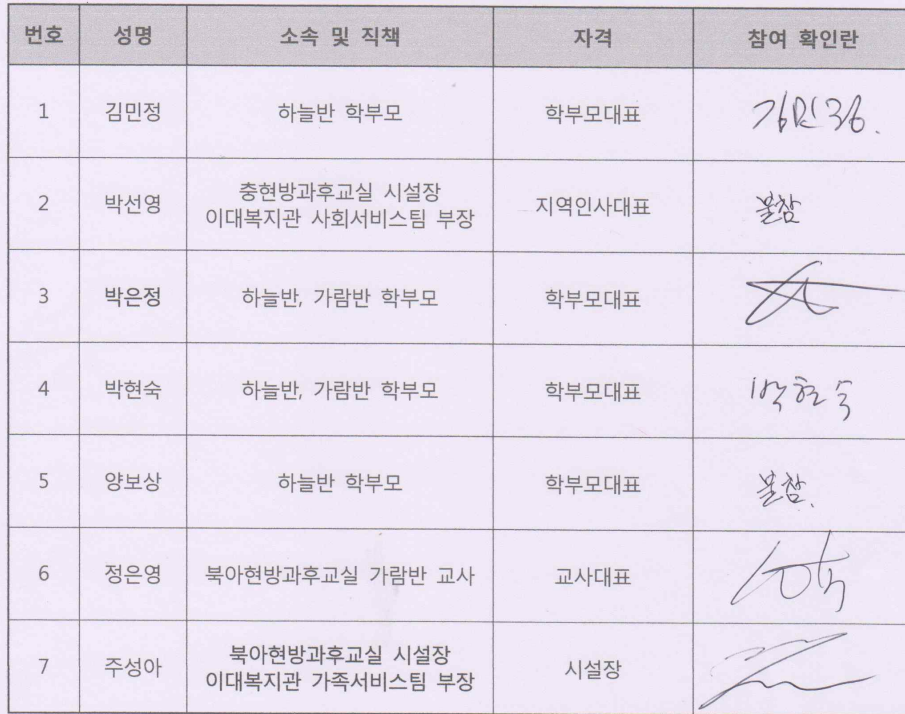 번호 성명 소속 및 직책 자격 참여 확인란
1 김민정 하늘반 학부모 학부모대표 김민정.
2 박선영 충현방과후교실 시설장 지역인사대표 불참
이대복지관 사회서비스팀 부장
3 박은정 하늘반, 가람반 학부모 학부모대표
4 박현숙 하늘반, 가람반 학부모 학부모대표 박현숙
5 양보상 하늘반 학부모 학부모대표 불참.
6 정은영 북아현방과후교실 가람반 교사 교사대표
7 주성아 북아현방과후교실 시설장 시설장
이대복지관 가족서비스팀 부장